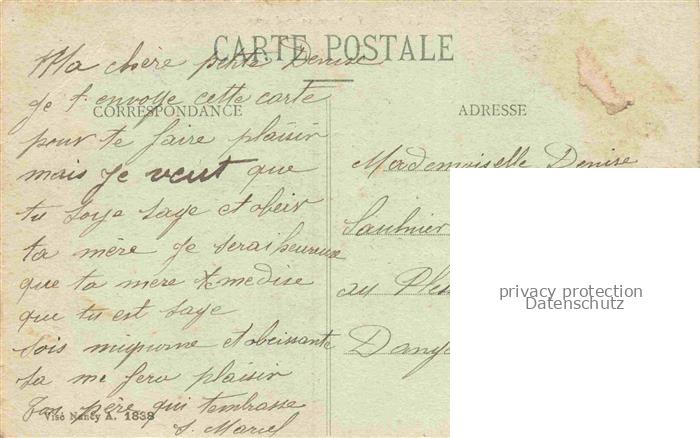 CARTE POSTALE
CORRESPONDANCE
ADRESSE
Ma chère petite Denise
je t envoye cette carte
pour te faire plaisir
mais je veut que
tu soye sage et obeir
ta mère je serai heureux
que ta mere me dise
que tu est sage
sois mignonne et obeissante
sa me fera plaisir
Ton père qui t'embrasse
Mademoiselle Denise
Saulnier
au
Visé Nancy A. 1838
privacy protection
Datenschutz